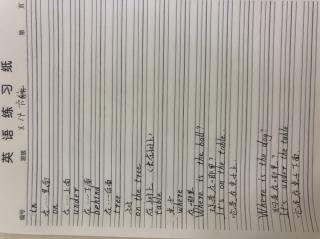 英语练习纸
编号 班级 姓名 第 页
in
在…里面
on
在…上面
under
在…下面
behind
在…后面
tree
树
on the tree
在树上
桌子
where
在哪里
Where is the ball?
球在哪里?
It's on the table.
它在桌子上。
Where is the dog?
狗在哪里?
It's under the table
它在桌子下面。